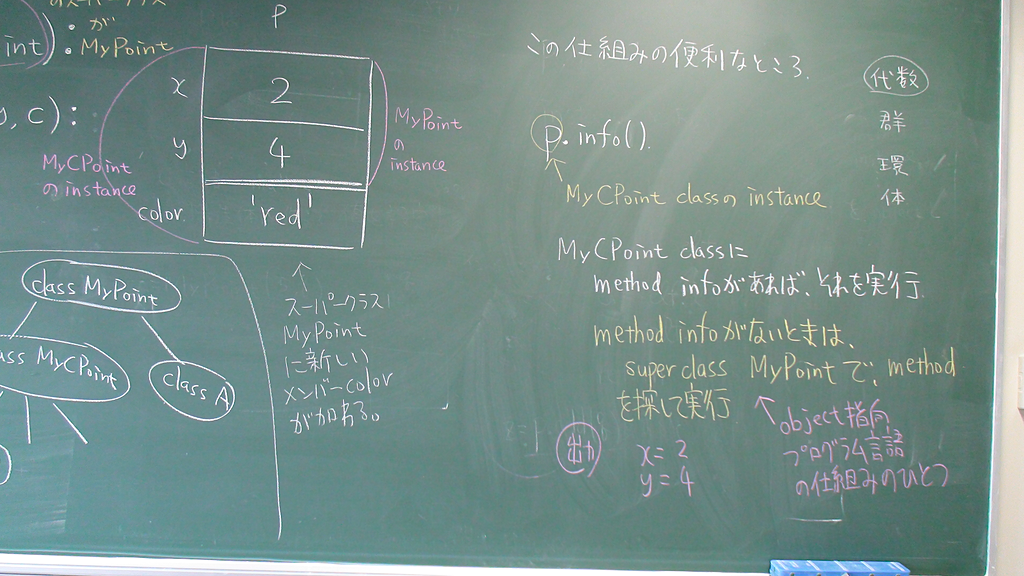 のスーパークラス
・が
int)・MyPoint
y, c):
P
x 2
y 4
color 'red'
MyCPoint
のinstance
MyPoint
の
instance
class MyPoint
ass MyCPoint
class A
↑
スーパークラス
MyPoint
に新しい
メンバーcolor
が加わる。
この仕組みの便利なところ.
p.info().
MyCPoint classのinstance
MyCPoint classに
method infoがあれば、それを実行.
method infoがないときは、
superclass MyPointで、method
を探して実行
object指向
プログラム言語
の仕組みのひとつ
出力
x = 2
y = 4
代数
群
環
体